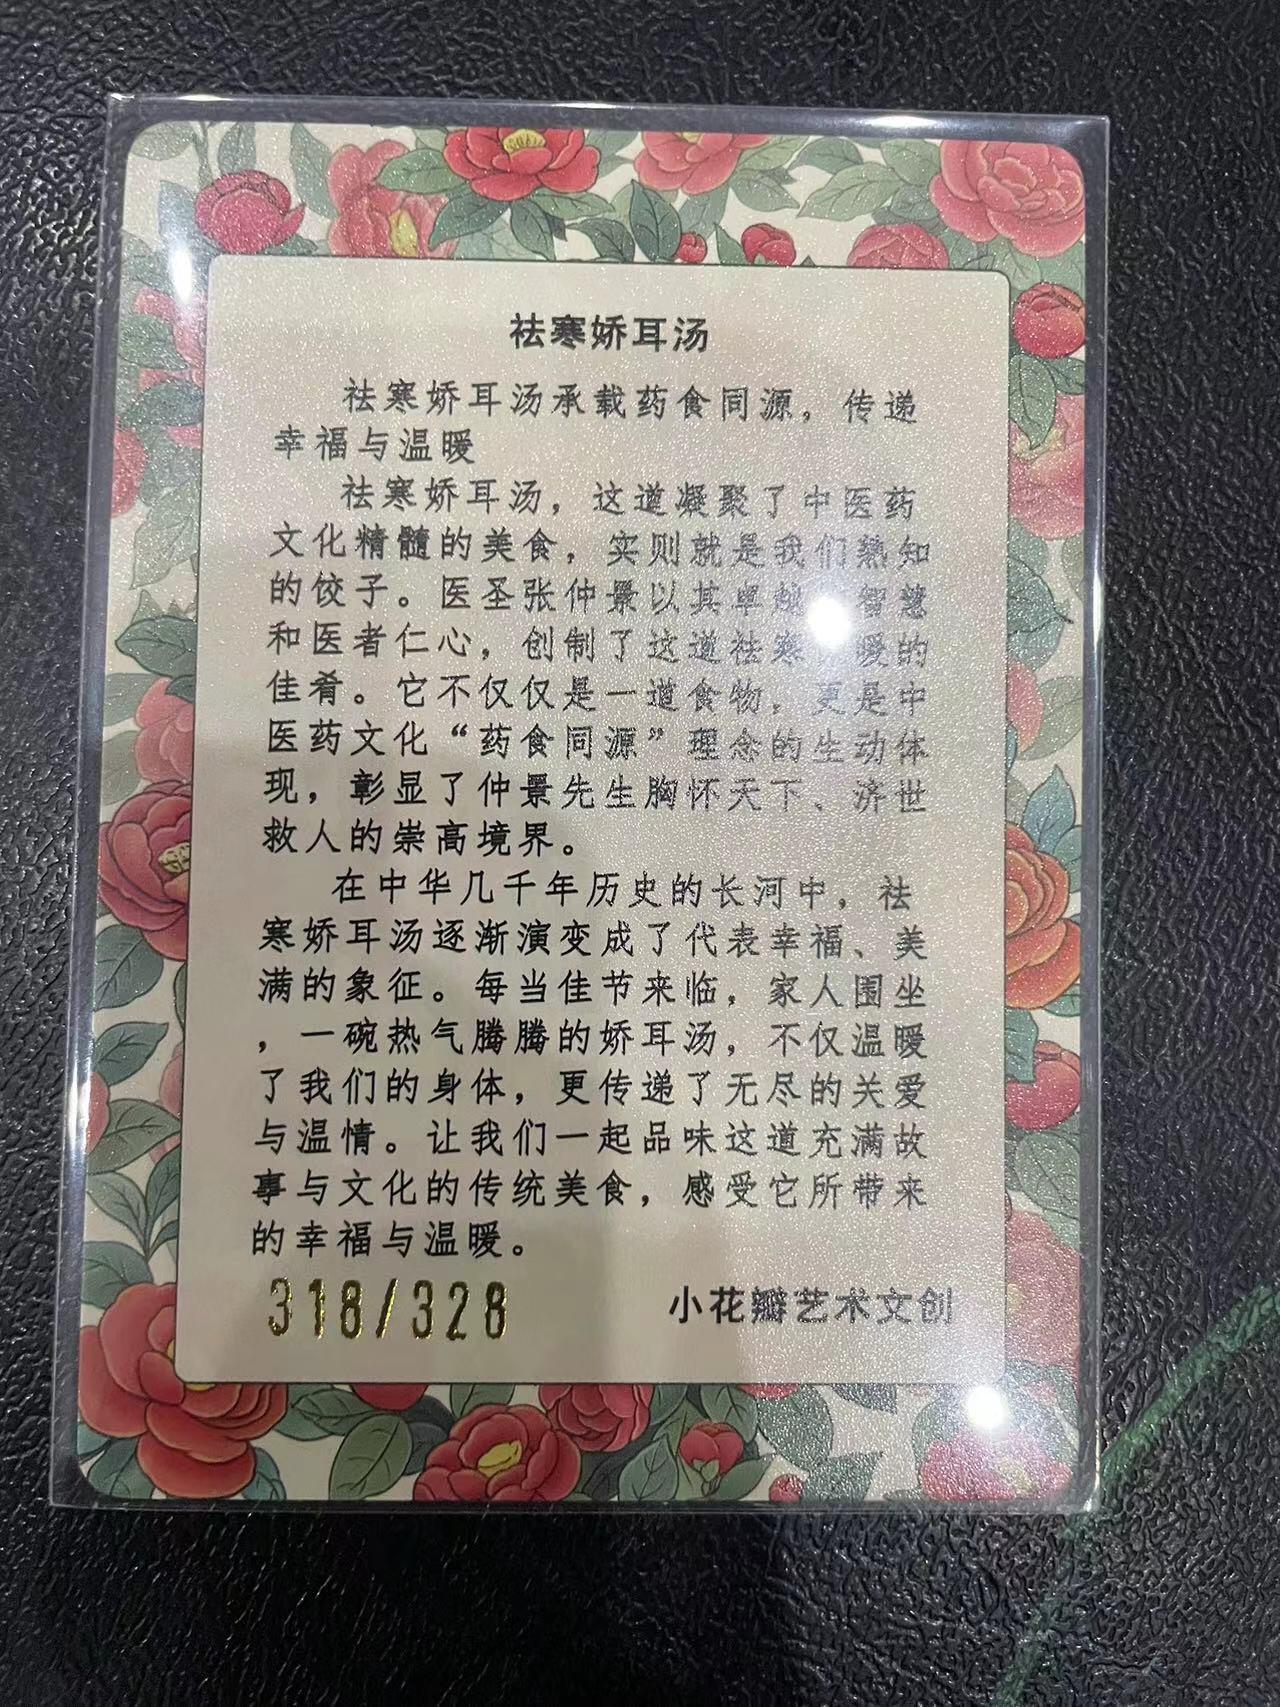 祛寒娇耳汤
祛寒娇耳汤承载药食同源，传递
幸福与温暖
祛寒娇耳汤，这道凝聚了中医药
文化精髓的美食，实则就是我们熟知
的饺子。医圣张仲景以其卓越 智慧
和医者仁心，创制了这道祛寒 暖的
佳肴。它不仅仅是一道食物，更是中
医药文化“药食同源”理念的生动体
现，彰显了仲景先生胸怀天下、济世
救人的崇高境界。
在中华几千年历史的长河中，祛
寒娇耳汤逐渐演变成了代表幸福、美
满的象征。每当佳节来临，家人围坐
，一碗热气腾腾的娇耳汤，不仅温暖
了我们的身体，更传递了无尽的关爱
与温情。让我们一起品味这道充满故
事与文化的传统美食，感受它所带来
的幸福与温暖。
318/328
小花瓣艺术文创